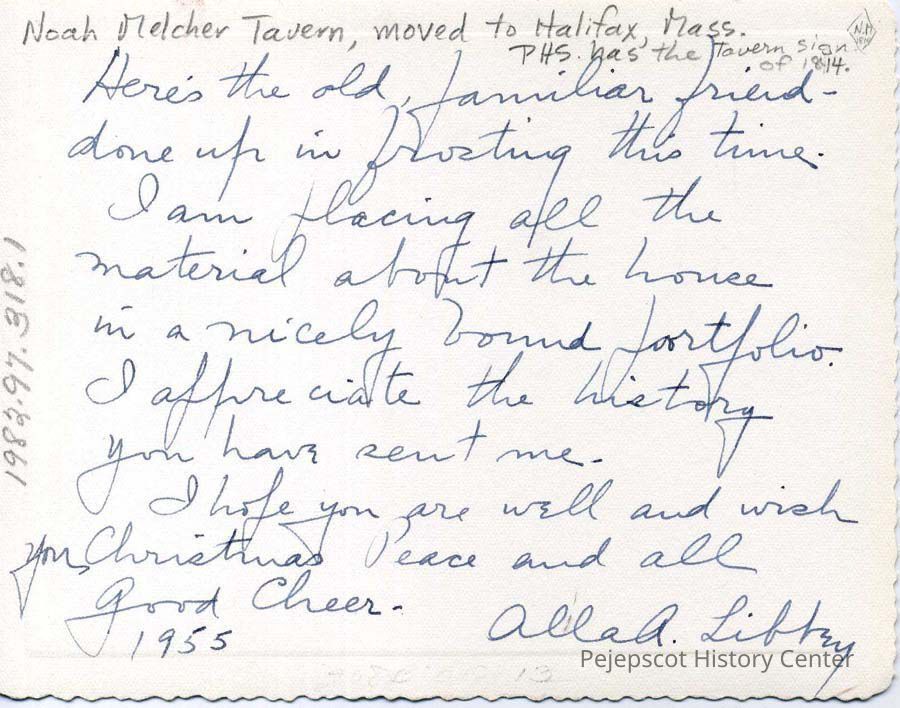 Noah Melcher Tavern, moved to Halifax, Mass.
PHS. has the Tavern sign
of 1814.
Here's the old, familiar friend -
done up in frosting this time.
I am placing all the
material about the house
in a nicely bound portfolio.
I appreciate the history
you have sent me.
I hope you are well and wish
you, Christmas Peace and all
Good Cheer.
1955
Alla A. Libbey
Pejepscot History Center
1982.97.318.1